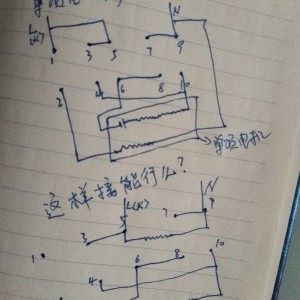 单项电
L N
(火)
1 3 5 7 9
2 4 6 8 10
单项电机
这样接能行么?
L(火) N
3 5 7 9
1
4 6 8 10